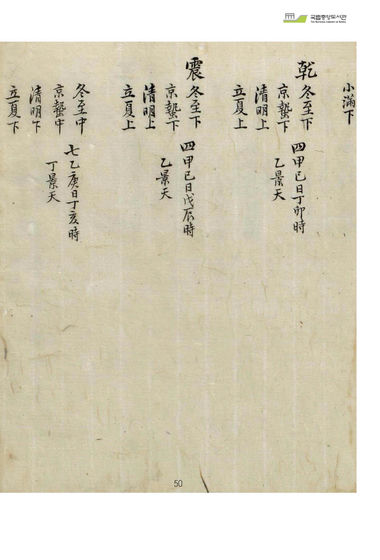 국립중앙도서관
小滿下
乾 冬至下 四甲己日丁卯時
京蟄下 乙景天
清明上
立夏上
震 冬至下 四甲己日戊辰時
京蟄下 乙景天
清明上
立夏上
冬至中 七乙庚日丁亥時
京蟄中 丁景天
清明下
立夏下
50